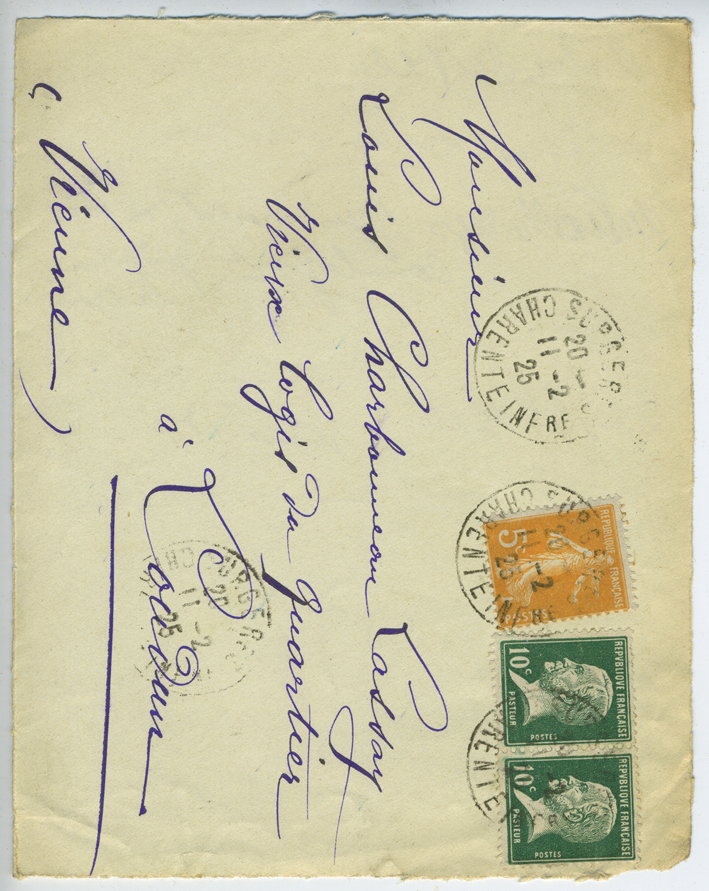 Monsieur
Louis Charbonneau Lassay
Vieux Logis du Quartier
à Loudun
(Vienne)
SURGERES
20
11-2
25
CHARENTE INFRE
SURGERES
20
11-2
25
CHARENTE INFRE
REPUBLIQUE FRANÇAISE
5c
REPVBLIQVE FRANÇAISE
10c
PASTEUR
POSTES
REPVBLIQVE FRANÇAISE
10c
PASTEUR
POSTES
SURGERES
20
11-2
25